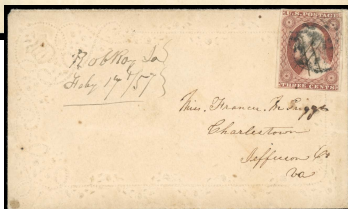 U.S. POSTAGE
THREE CENTS
Feby 17/57
Miss. Frances
Charlestown
Jefferson Co
Va